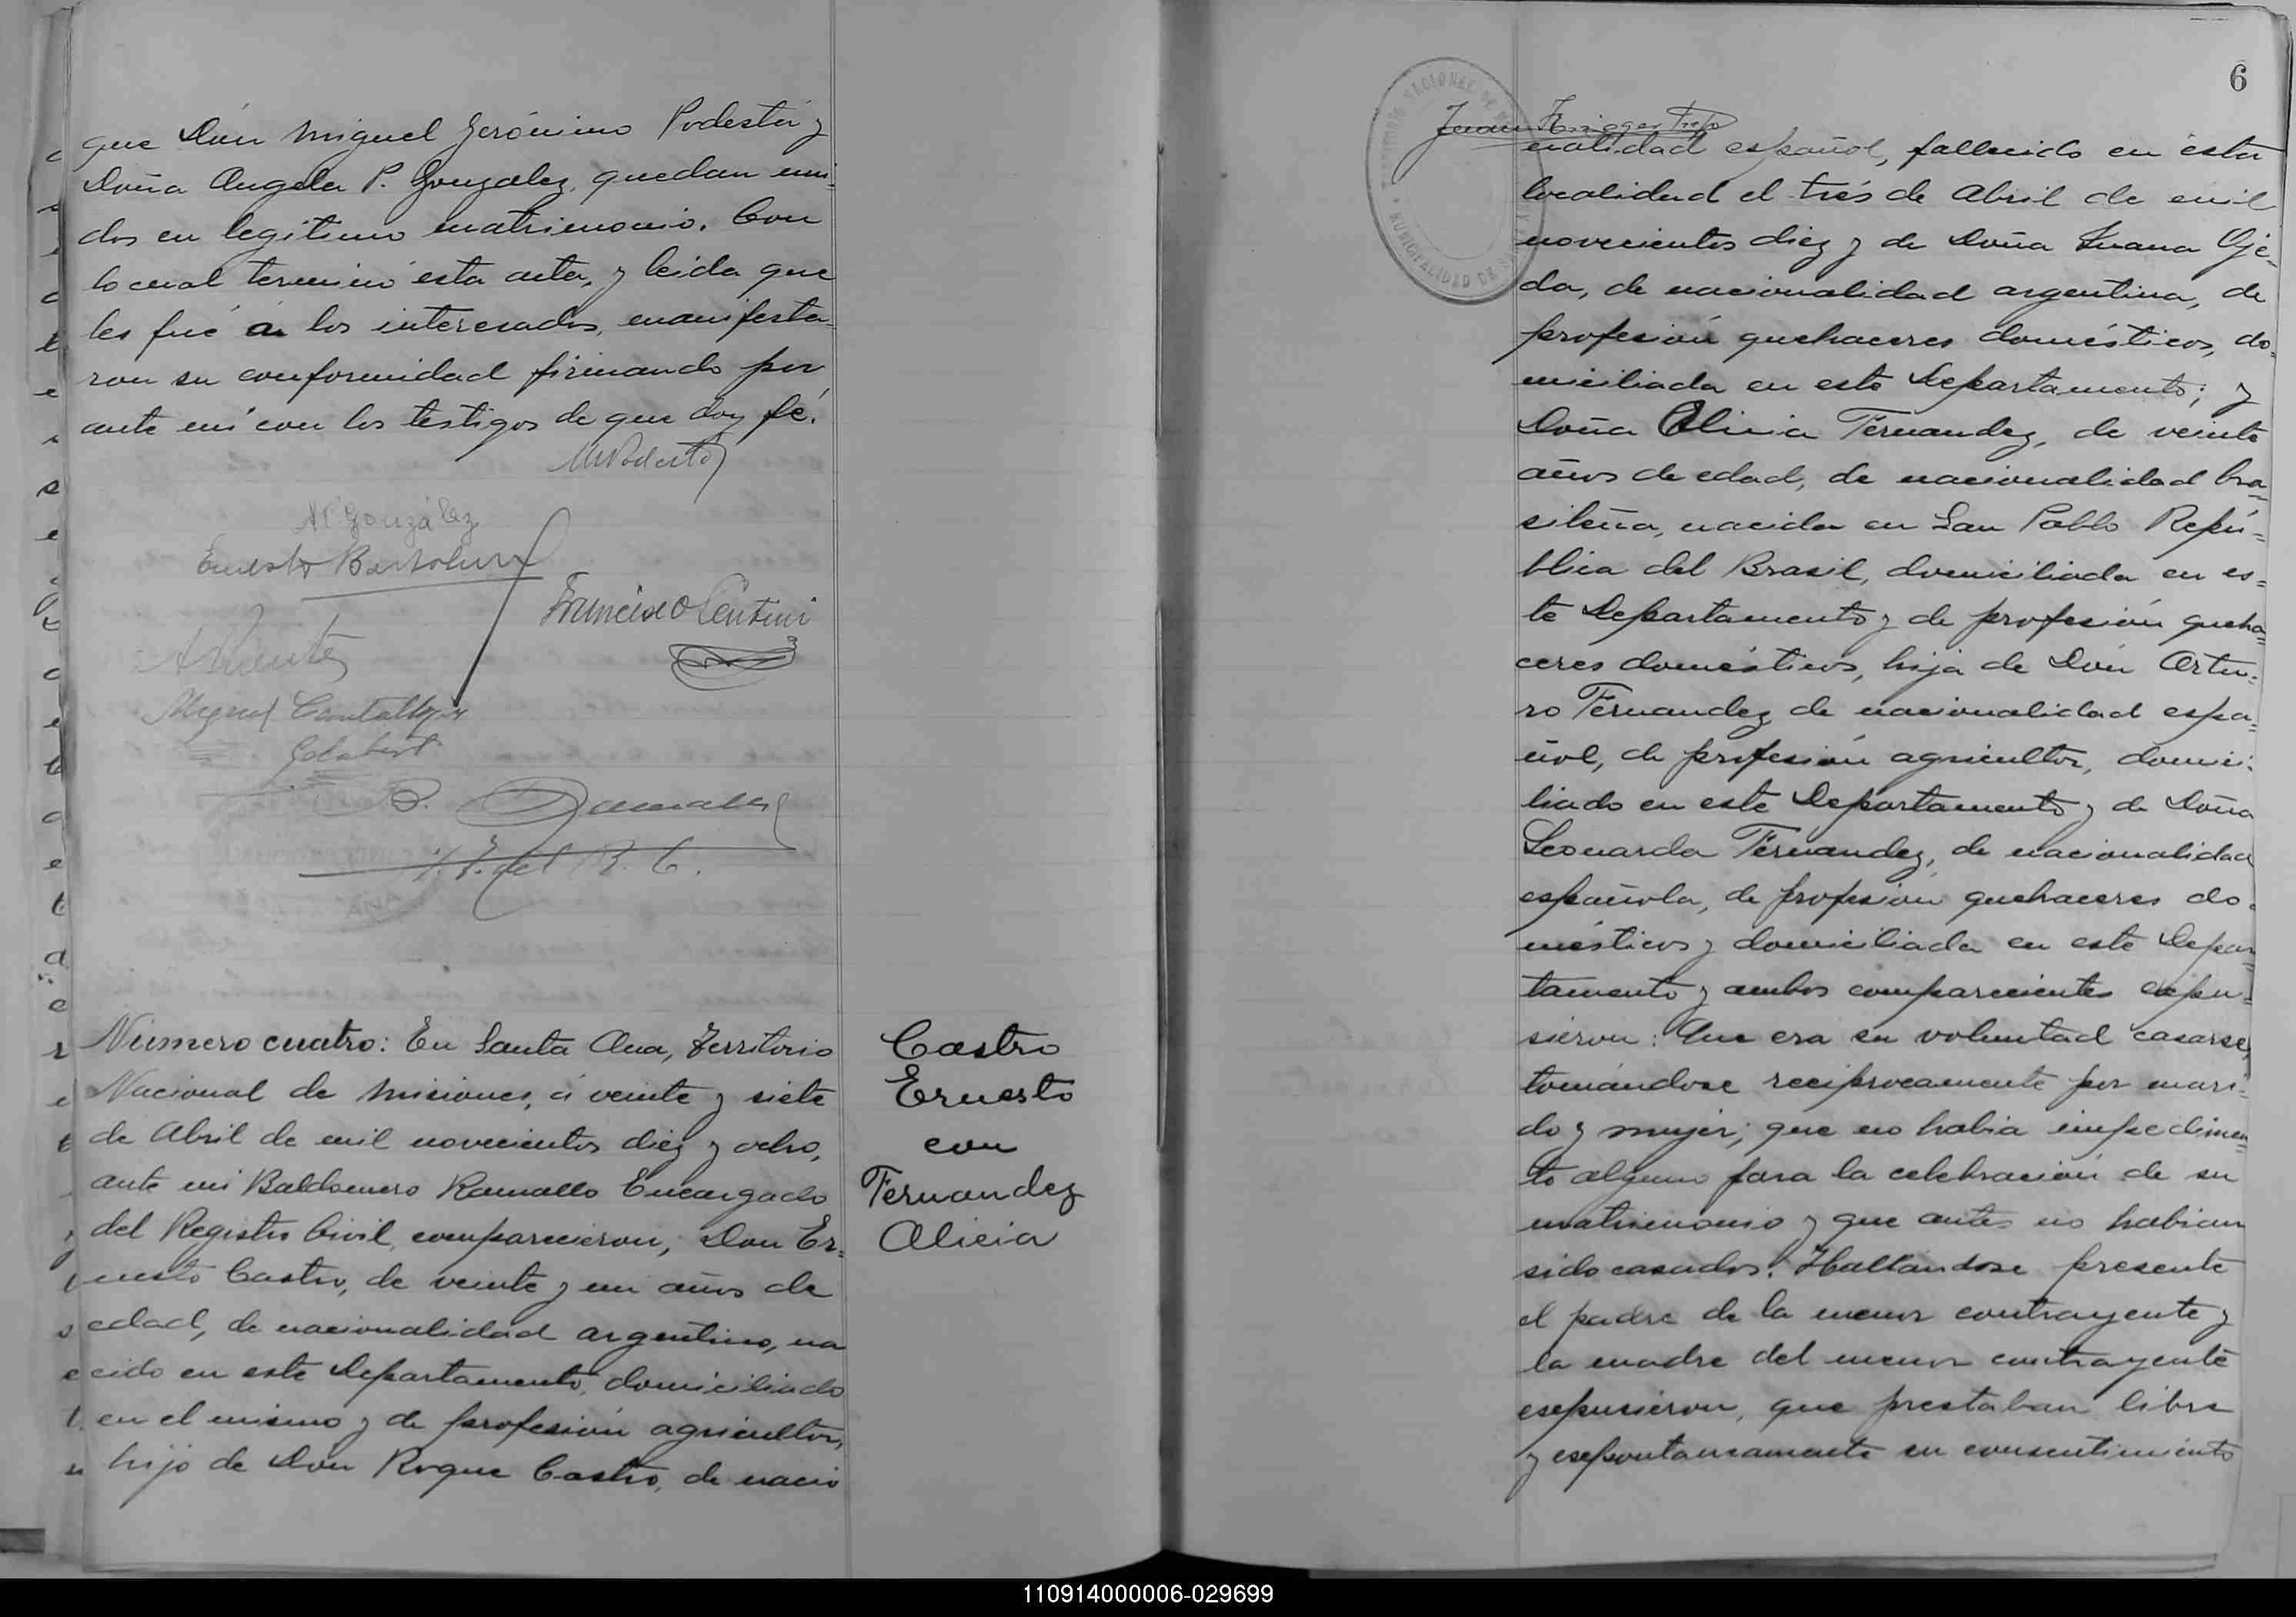 que Dón Miguel Jerónimo Podestá y
Doña Angela P. Gonzalez, quedan uni-
dos en legítimo matrimonio. Con
lo cual terminó esta acta, y leida que
les fué á los interesados, manifesta-
ron su conformidad firmando por
ante mí con los testigos de que doy fé.
MPodestá
A P González
Ernesto Bertolini
Francisco Centini
Miguel Cantallops
Gelabert
B. Ramallo
E. del R. C.
Número cuatro: En Santa Ana, Territorio
Nacional de Misiones, á veinte y siete
de Abril de mil novecientos diez y ocho,
ante mi Baldomero Ramallo Encargado
del Registro Civil, comparecieron; Don Er-
nesto Castro, de veinte y un años de
edad, de nacionalidad argentino, na
cido en este Departamento, domiciliado
en el mismo y de profesión agricultor,
hijo de Don Roque Castro, de nacio
Castro
Ernesto
con
Fernandez
Alicia
6
TERRITORIOS NACIONALES DE
MUNICIPALIDAD DE
Juan
nalidad español, fallecido en ésta
localidad el trés de Abril de mil
novecientos diez y de Doña Juana Oje-
da, de nacionalidad argentina, de
profesión quehaceres domésticos, do-
miciliada en este Departamento; y
Doña Alicia Fernandez, de veinte
años de edad, de nacionalidad bra-
sileña, nacida en San Pablo Repú-
blica del Brasil, domiciliada en es-
te Departamento y de profesión queha-
ceres domésticos, hija de Dón Artu-
ro Fernandez de nacionalidad espa-
ñol, de profesión agricultor, domici-
liado en este Departamento y de Doña
Leonarda Fernandez, de nacionalidad
española, de profesión quehaceres do-
mésticos y domiciliada en este Depar-
tamento y ambos comparecientes expu-
sieron: Que era su voluntad casarse,
tomándose recíprocamente por mari-
do y mujer; que no habia impedimen-
to alguno para la celebración de su
matrimonio y que antes no habian
sido casados. Hallandose presente
el padre de la menor contrayente y
la madre del menor contrayente
expusieron, que prestaban libre
y expontaneamente su consentimiento
110914000006-029699